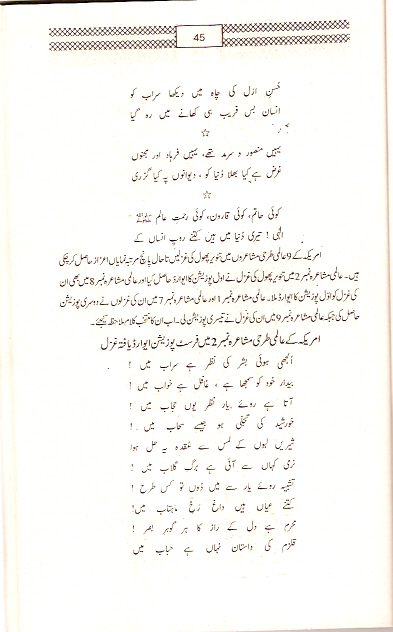 45
حُسنِ ازل کی چاہ میں دیکھا سراب کو
انسان بس فریب ہی کھانے میں رہ گیا
☆
یہیں منصور و سرمد تھے، یہیں فرہاد اور مجنوں
غرض ہے کیا بھلا دُنیا کو، دیوانوں پہ کیا گزری
☆
کوئی حاتم، کوئی قارون، کوئی رحمتِ عالم ﷺ
الٰہی! تیری دُنیا میں ہیں کتنے روپ انساں کے
امریکہ کے 9 عالمی طرحی مشاعروں میں تنویر پھول کی غزلیں تاحال پانچ مرتبہ نمایاں اعزاز حاصل کر چکی
ہیں۔ عالمی مشاعرہ نمبر 2 میں تنویر پھول کی غزل نے اوّل پوزیشن کا ایوارڈ حاصل کیا اور عالمی مشاعرہ نمبر 8 میں بھی ان
کی غزل کو اوّل پوزیشن کا ایوارڈ ملا۔ عالمی مشاعرہ نمبر 1 اور عالمی مشاعرہ نمبر 7 میں ان کی غزلوں نے دوسری پوزیشن
حاصل کی جبکہ عالمی مشاعرہ نمبر 9 میں ان کی غزل نے تیسری پوزیشن لی۔ اب ان کا منتخب کلام ملاحظہ کیجئے۔
امریکہ کے عالمی طرحی مشاعرہ نمبر 2 میں فرسٹ پوزیشن ایوارڈ یافتہ غزل
اُلجھی ہوئی بشر کی نظر ہے سراب میں !
بیدار خود کو سمجھا ہے ، غافل ہے خواب میں !
آتا ہے روئے یار نظر یوں حجاب میں !
خورشید کی تجلی ہو جیسے سحاب میں !
شیریں لبوں کے لمس سے عُقدہ یہ حل ہوا
نرمی کہاں سے آئی ہے برگِ گلاب میں !
تشبیہ روئے یار سے میں دُوں تو کس طرح !
کتنے عیاں ہیں داغ رُخِ ماہتاب میں!
محرم ہے دل کے راز کا ہر گوہرِ بصر !
قلزم کی داستان نہاں ہے حباب میں